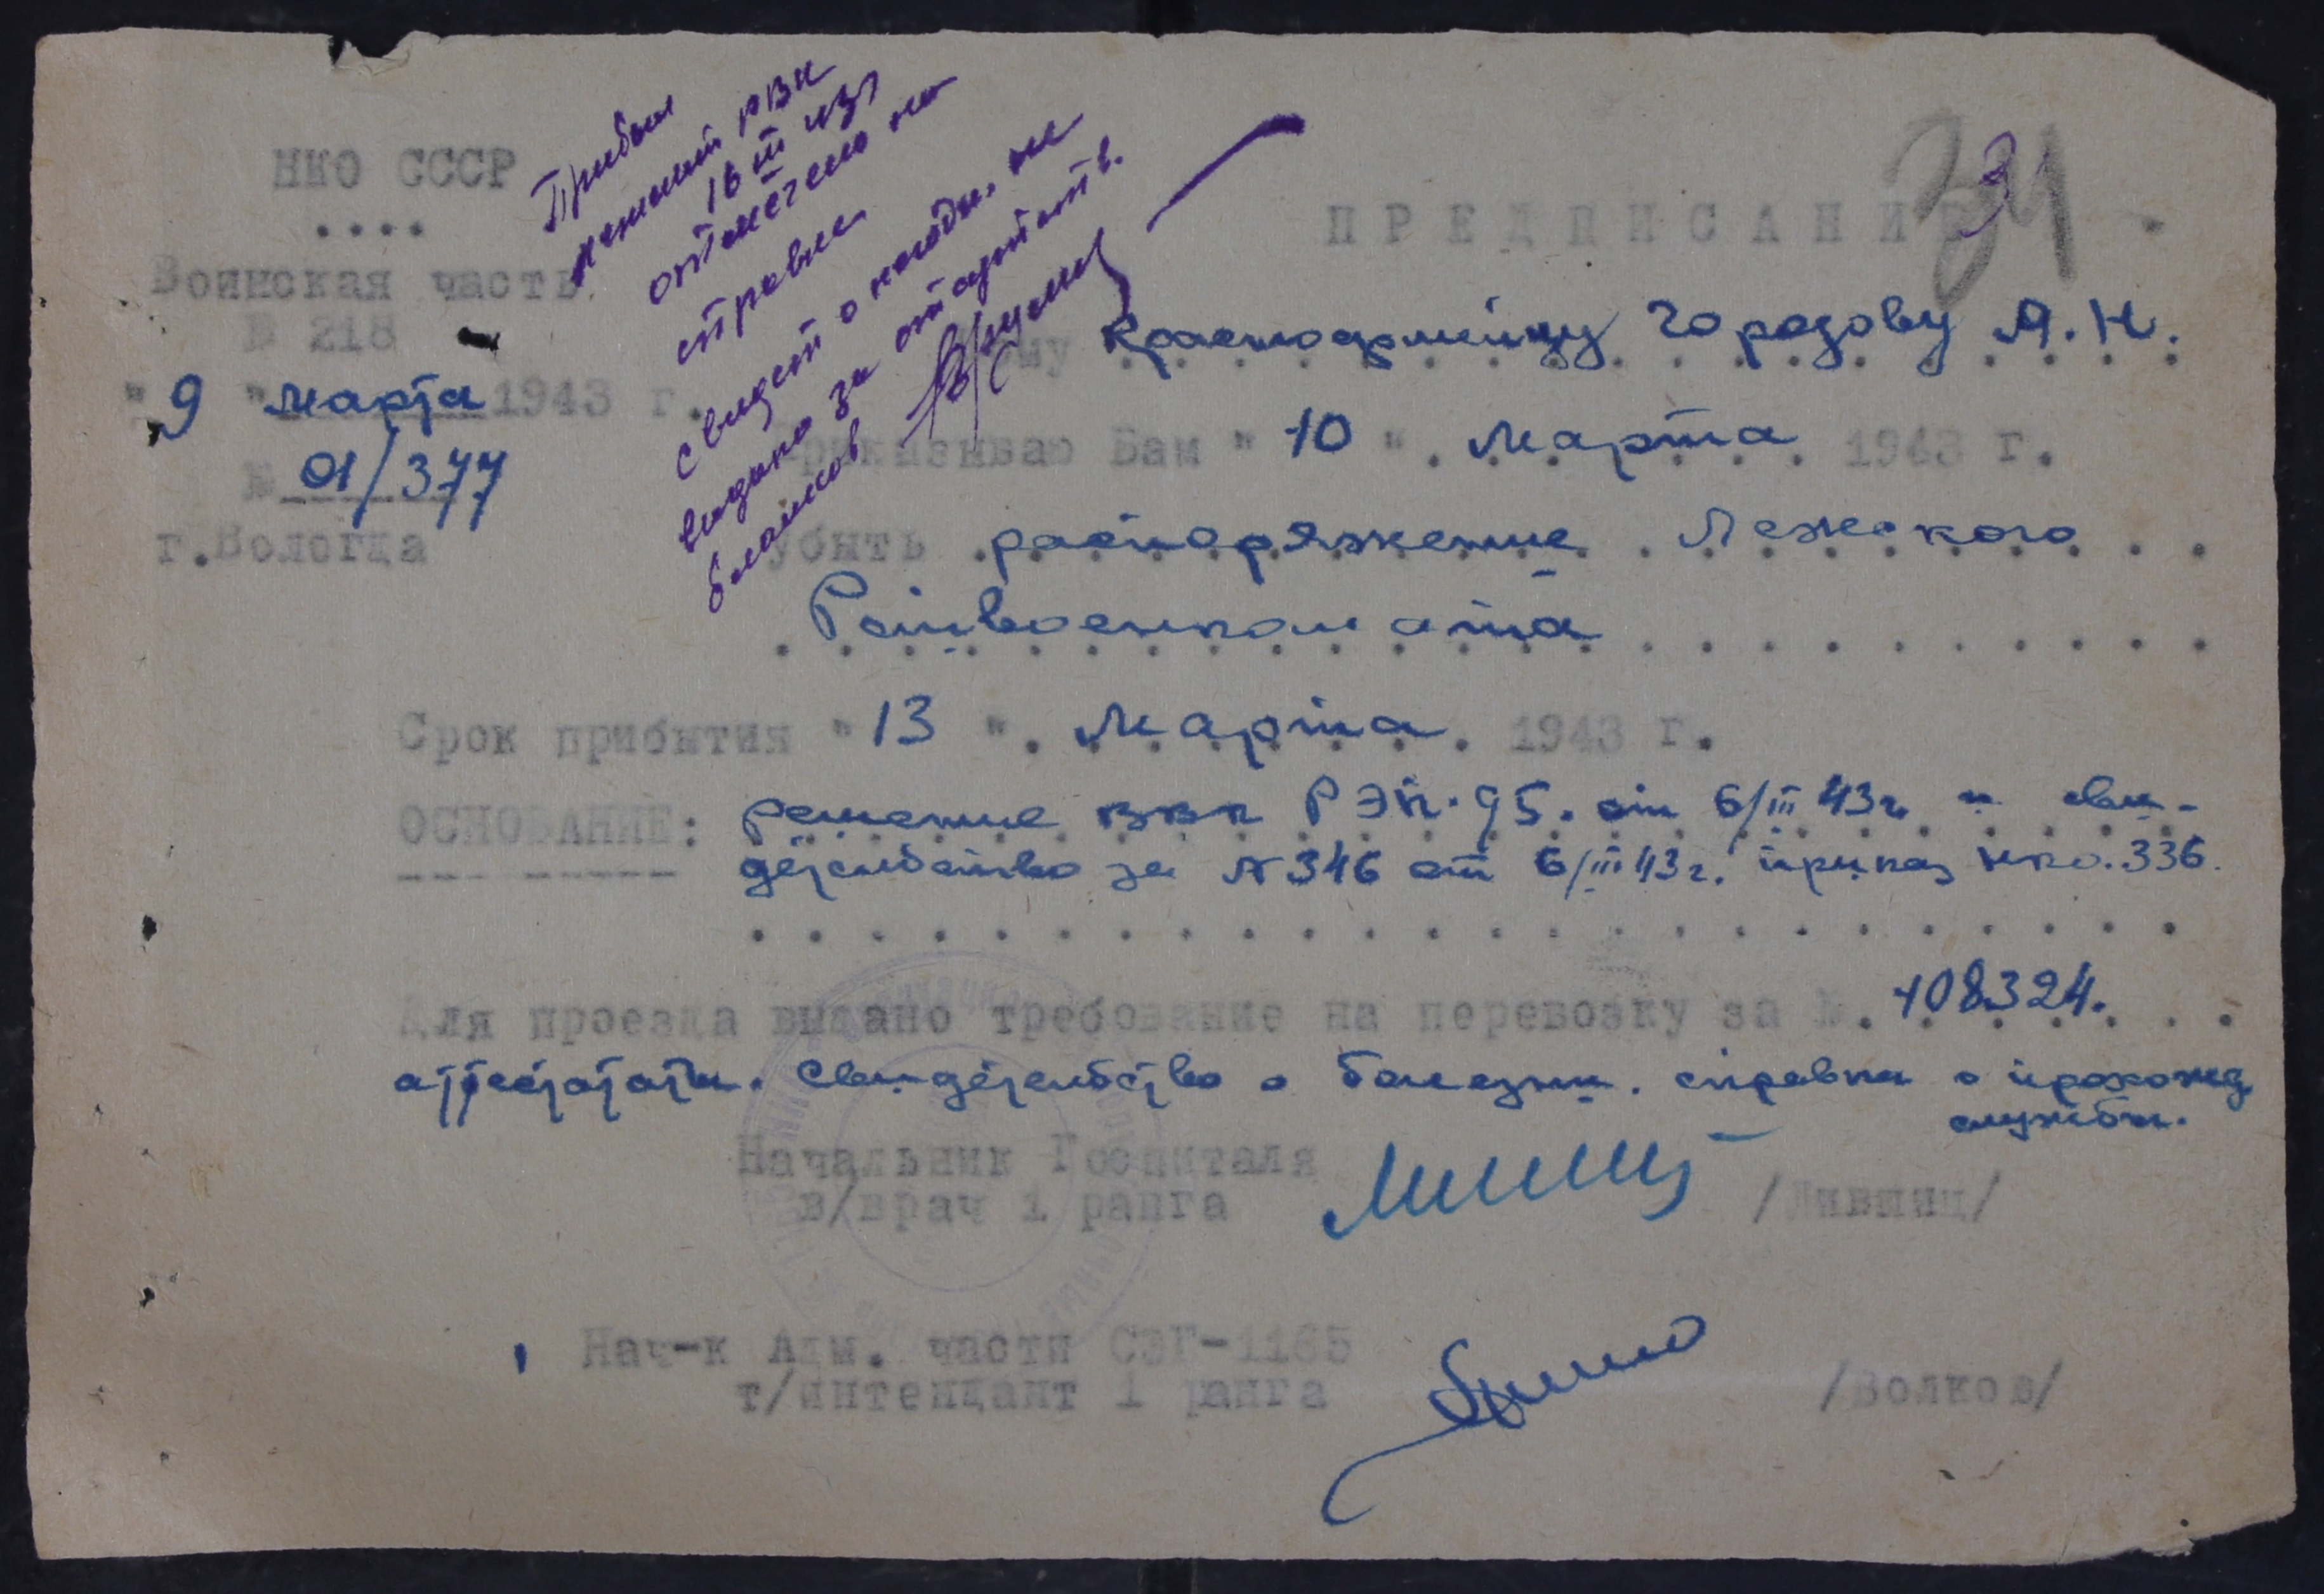 НКО СССР
Воинская часть
№ 218
"9" марта 1943 г.
№ 01/377
г.Вологда
Прибыл
РВК
16 III 43г
отмечено на
справке
свидет о
выдано за отсутств.
бланков
34
3
ПРЕДПИСАНИЕ
Кому Красноармейцу Городову А.Н.
Приказываю Вам "10" марта 1943 г.
убыть распоряжение Лежского
Райвоенкомата
Срок прибытия "13" марта 1943 г.
ОСНОВАНИЕ: решение ввк РЭП-95. от 6/III 43г. и сви-
детельство за №346 от 6/III 43г. приказ нко.336.
Для проезда выдано требование на перевозку за №. 108324.
аттестаты. Свидетельство о болезни. справка о прохожд
службы.
Начальник Госпиталя
в/врач 1 ранга /Лившиц/
Нач-к Адм. части СЭГ-1165
т/интендант 1 ранга /Волков/